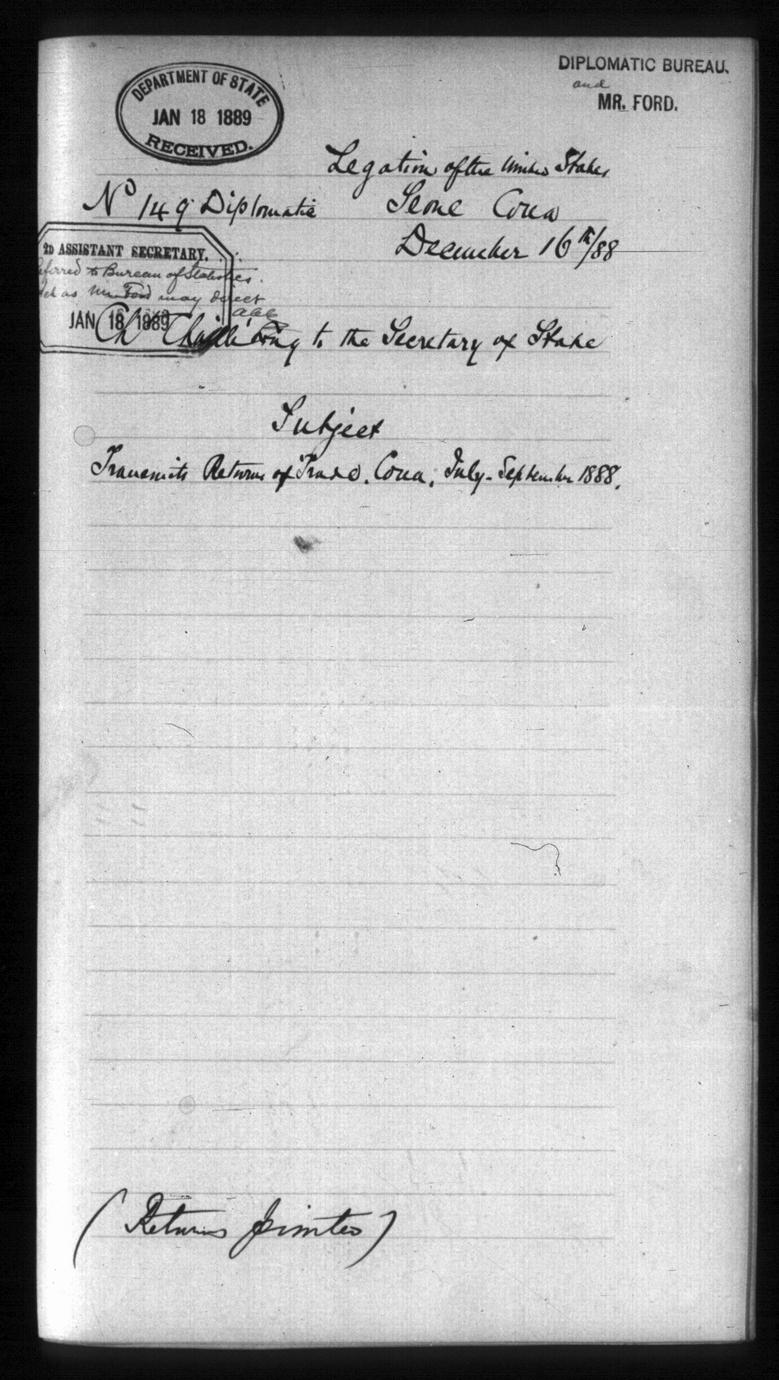 DEPARTMENT OF STATE
JAN 18 1889
RECEIVED.
DIPLOMATIC BUREAU.
and
MR. FORD.
Legation of the United States
No 149 Diplomatic Seoul Corea
December 16th/88
2D ASSISTANT SECRETARY.
referred to Bureau of Statistics.
as Mr. Ford may direct
JAN 18 1889
Ch Chaillé Long to the Secretary of State
Subject
Transmits Returns of Trade. Corea, July-September 1888.
(Returns printed)